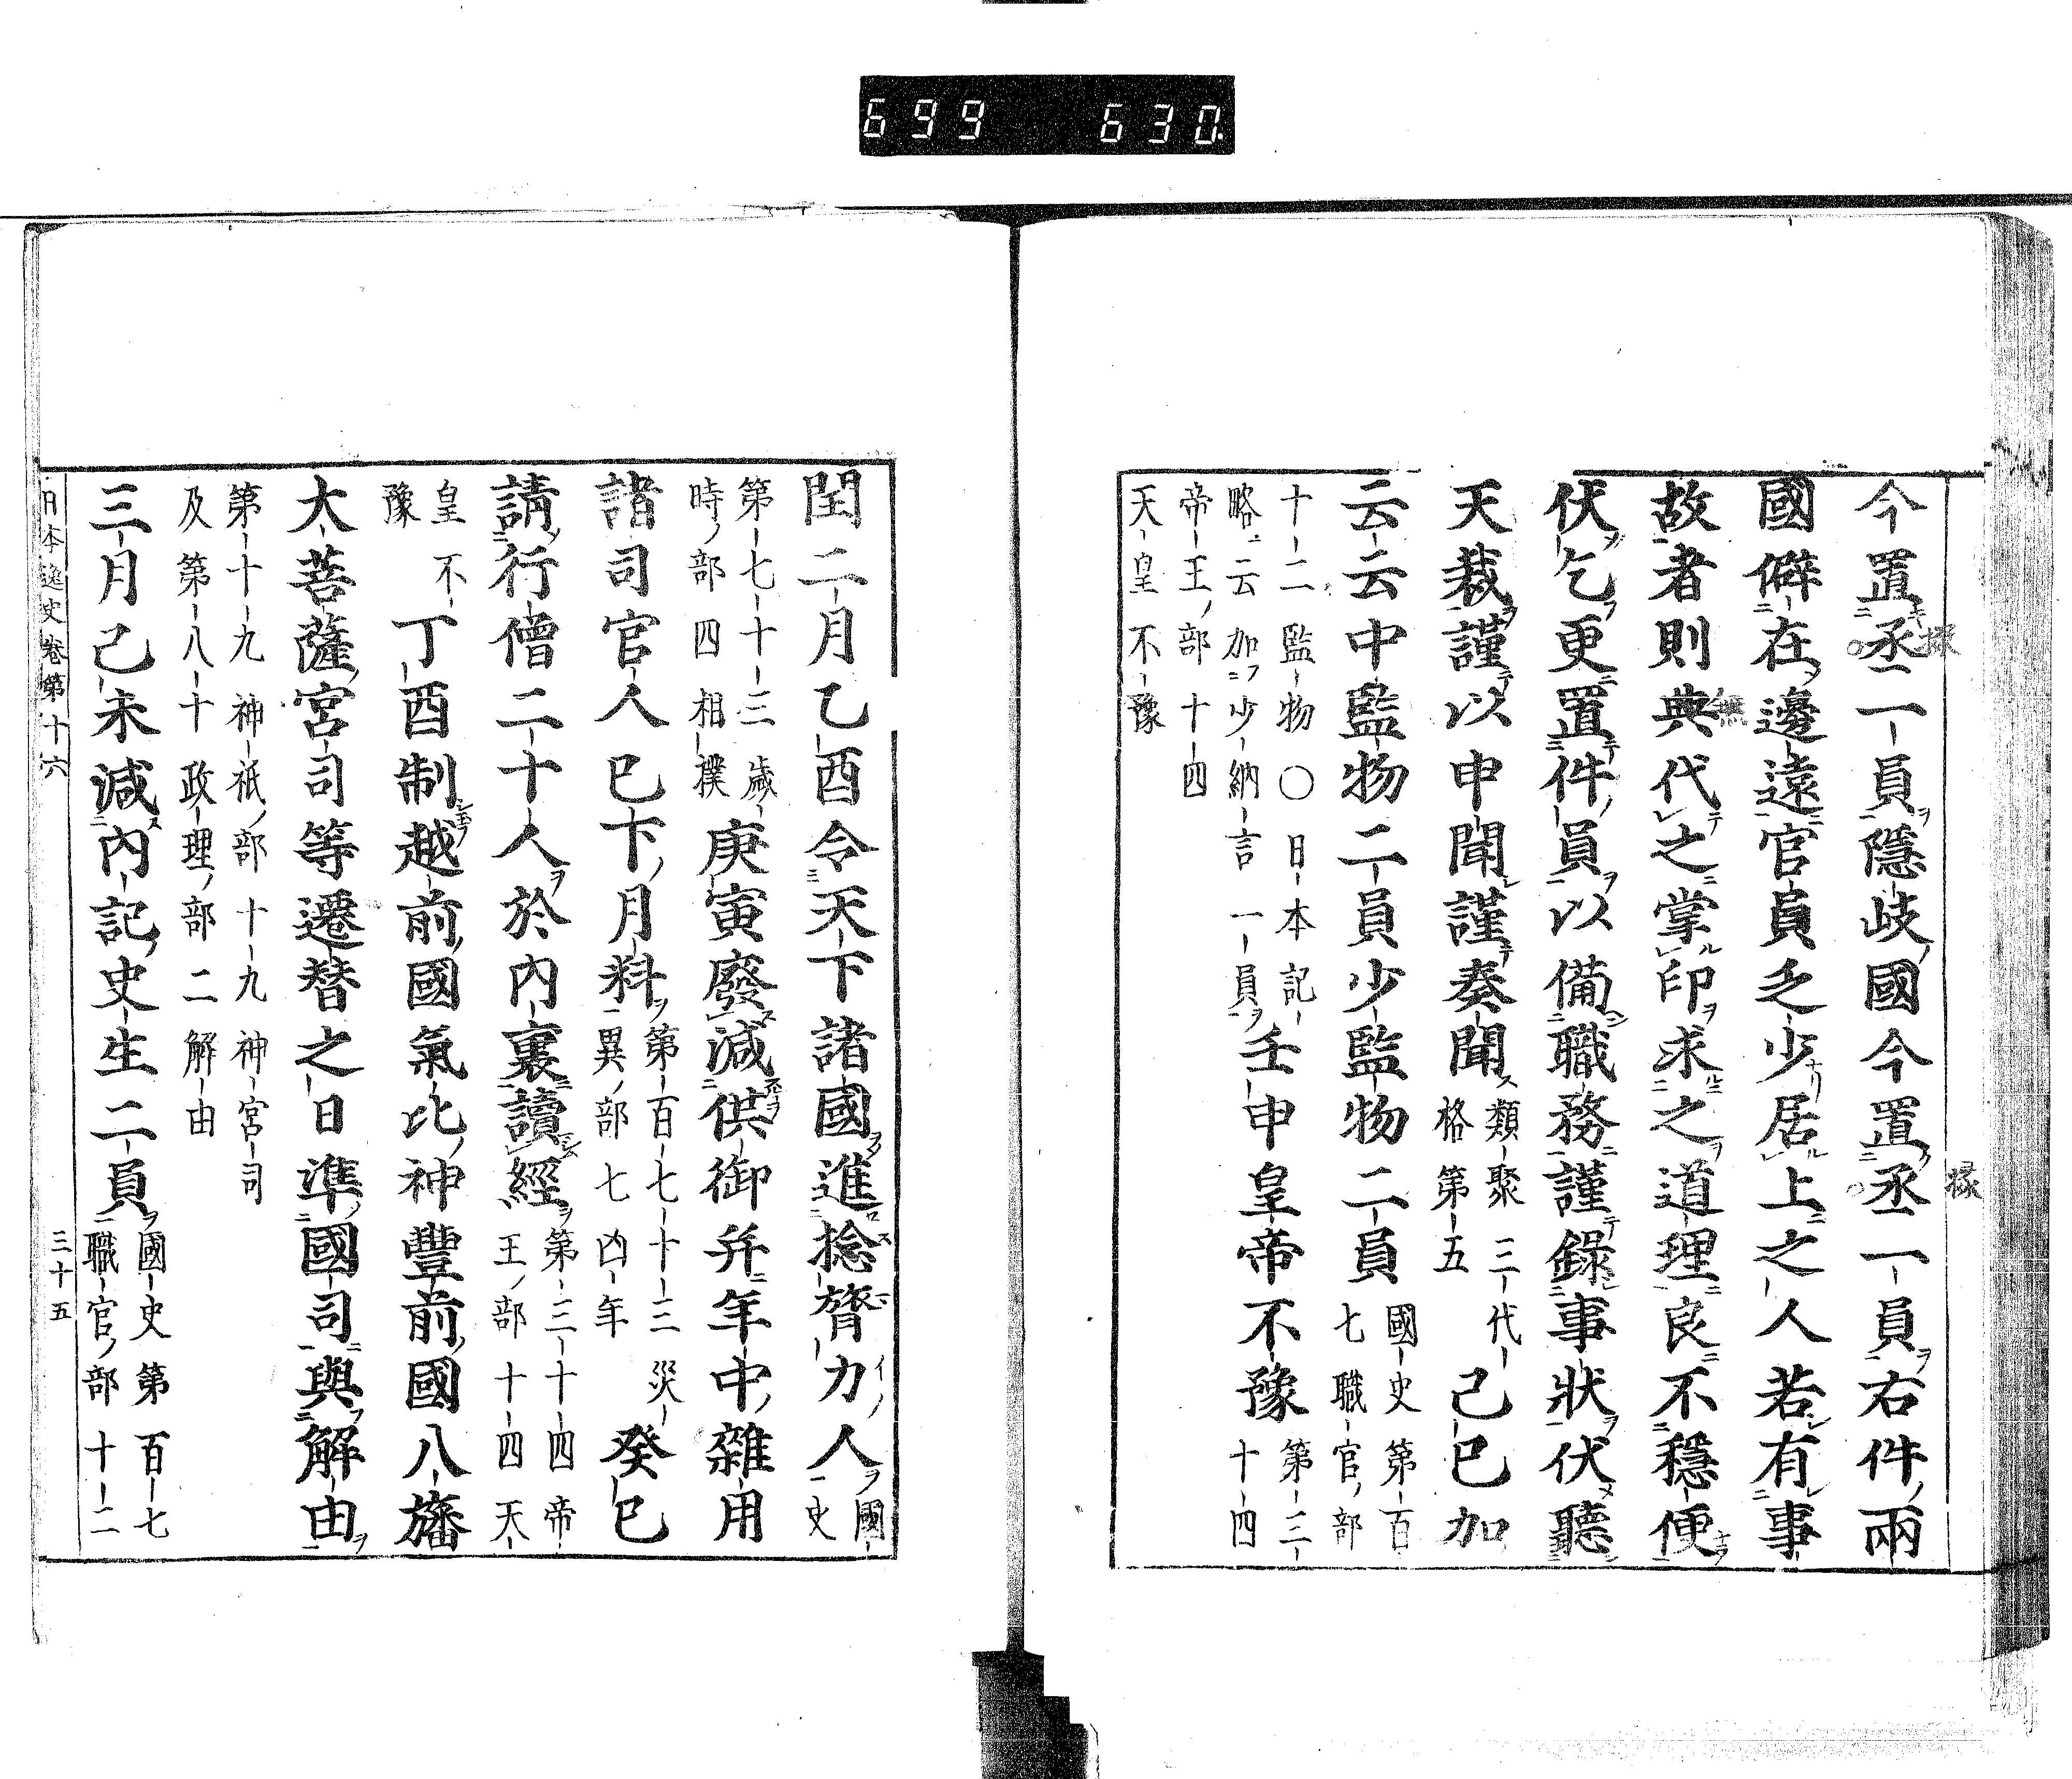 699 630
今置丞一員隱岐國今置丞一員右件兩
掾
掾
國僻在邊遠官員乏少居上之人若有事
故者則典代之掌印求之道理良不穩便
無
伏乞更置件員以備職務謹錄事狀伏聽
天裁謹以申聞謹奏聞
類聚三代
格第五
己巳加
云云中監物二員少監物二員
國史第百
七職官部
十二監物〇日本記
略云加少納言一員
壬申皇帝不豫
第三
十四
帝王部十四
天皇不豫
閏二月乙酉令天下諸國進捻膂力人
國
史
第七十三歲
時部四相撲
庚寅廢減供御并年中雜用
諸司官人已下月料
第百七十三災
異部七凶年
癸巳
請行僧二十人於內裏讀經
第三十四帝
王部十四天
皇不
豫
丁酉制越前國氣比神豐前國八旛
大菩薩宮司等遷替之日準國司與解由
第十九神祇部十九神宮司
及第八十政理部二解由
三月己未減內記史生二員
國史第百七
職官部十二
日本逸史卷第十六
三十五